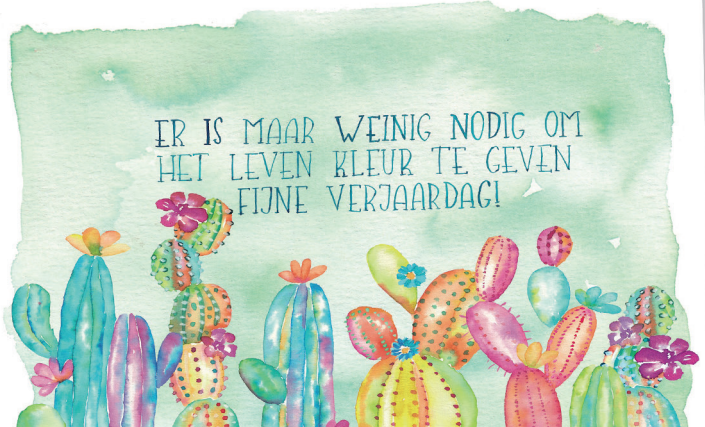 ER IS MAAR WEINIG NODIG OM
HET LEVEN KLEUR TE GEVEN
FIJNE VERJAARDAG!